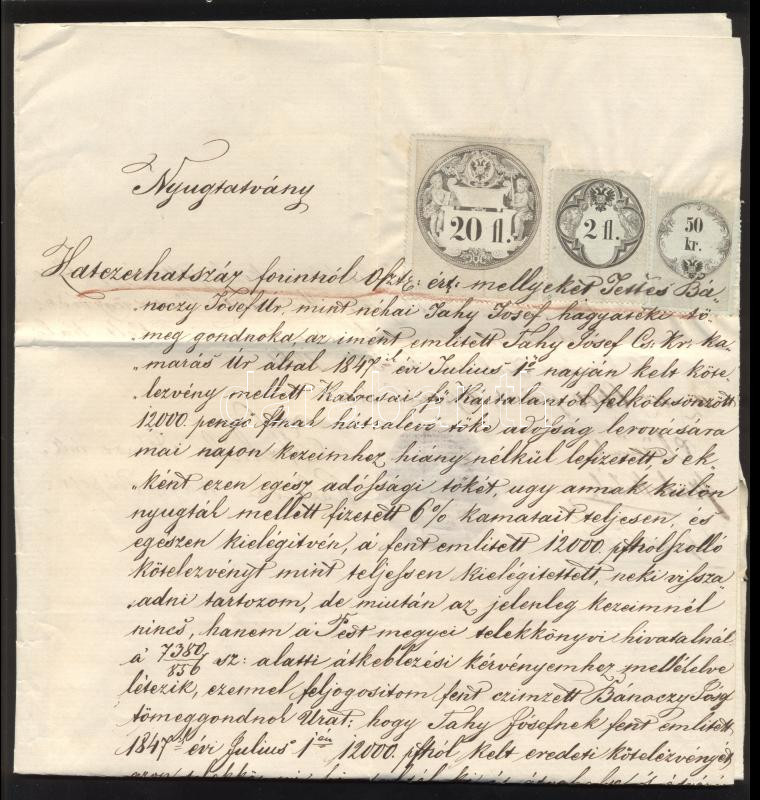 Nyugtatvány
20 fl.
2 fl.
50
kr.
Hatezerhatszáz forintról Osztr: ért: mellyeket Tettes Bá-
noczy Jósef Úr, mint néhai Tahy Josef hagyatéki tö-
meg gondnoka, az imént említett Tahy Josef Cs. Kr. ka-
marás Úr által 1847ik évi Julius 1ső napján kelt köte-
lezvény mellett Kalocsai fő káptalantól felkölcsönzött
12000. pengő ftnak hátralévő tőke adósság lerovására
mai napon kezeimhez hiány nélkül lefizetett, s ek-
ként ezen egész adóssági tőkét, ugy annak külön
nyugták mellett fizetett 6% kamatait teljesen, és
egészen kielégitvén, á fent említett 12000. pftról szolló
kötelezvényt mint teljessen kielégitettett, neki vissza-
adni tartozom, de miután az jelenleg kezeimnél
nincs, hanem á Pest megyei telekkönyvi hivatalnál
á 7380/856 sz: alatti átkeblezési kérvényemhez mellékelve
létezik, ezennel feljogositom fent czimzett Bánoczy Jósef
tömeggondnok Urat: hogy Tahy Jósefnek fent említett
1847ik évi Julius 1én 12000. pftról kelt eredeti kötelezvényét